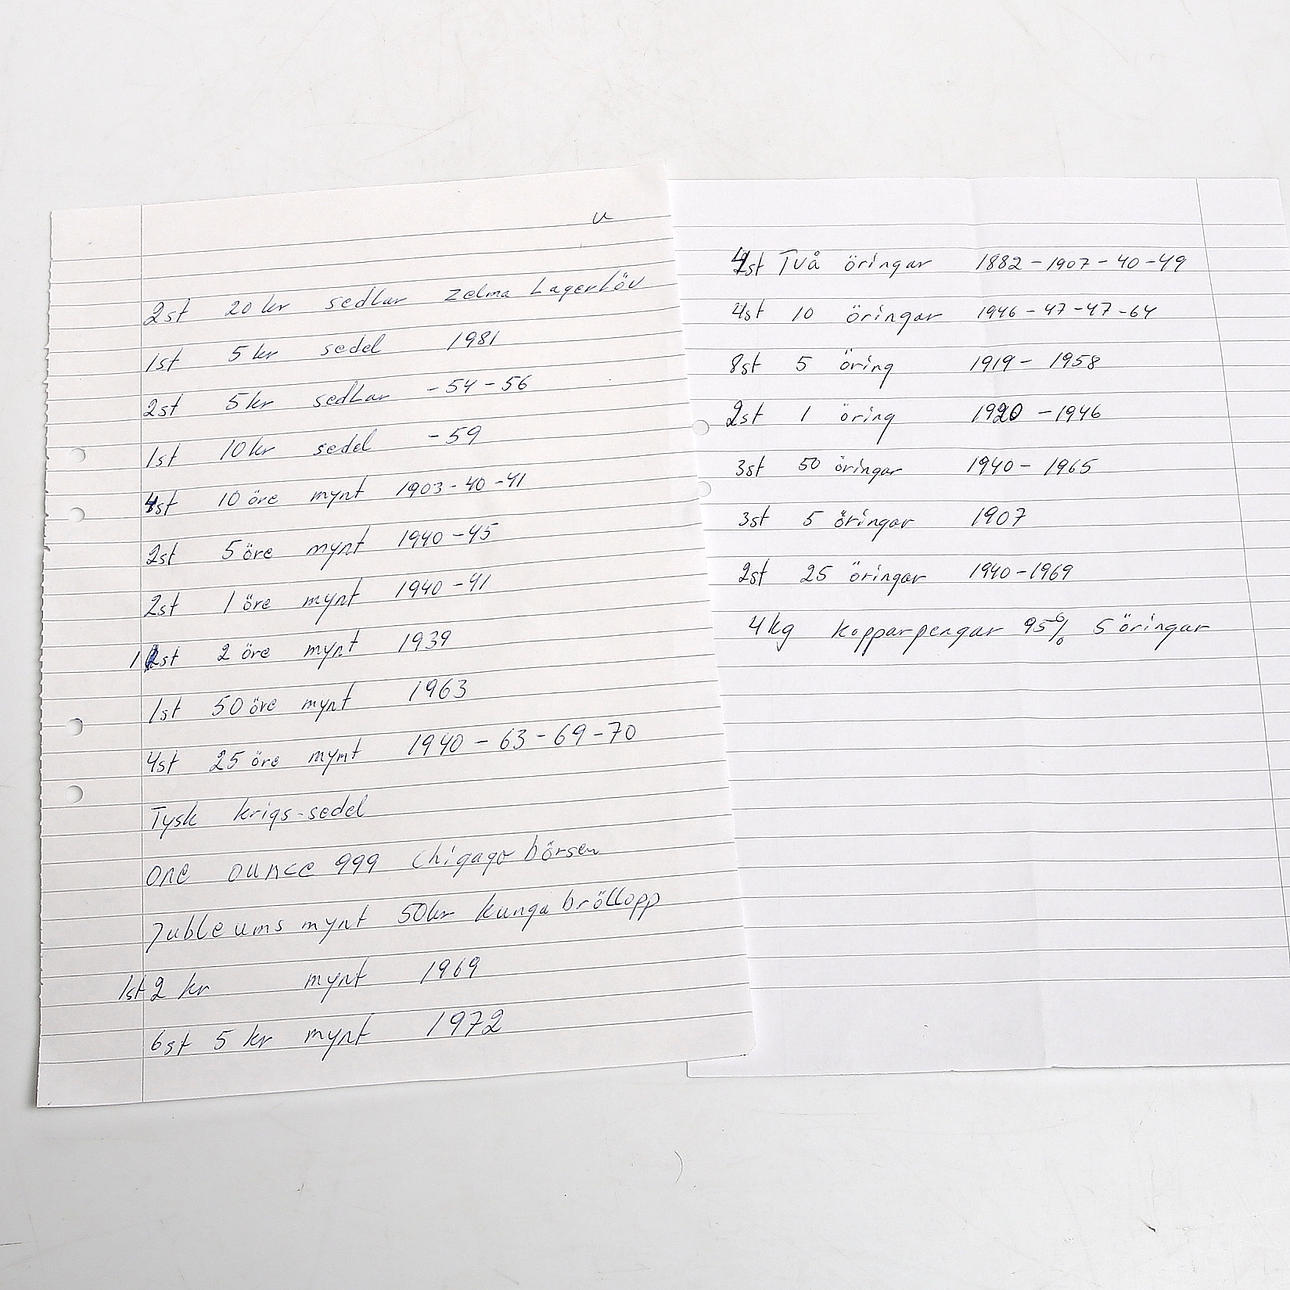 u
2st 20 kr sedlar Zelma Lagerlöv
1st 5 kr sedel 1981
2st 5 kr sedlar -54-56
1st 10 kr sedel -59
4st 10 öre mynt 1903-40-41
2st 5 öre mynt 1940-45
2st 1 öre mynt 1940-41
1st 2 öre mynt 1939
1st 50 öre mynt 1963
4st 25 öre mynt 1940-63-69-70
Tysk krigs-sedel
One ounce 999 Chigago börsen
Jubleums mynt 50kr kunga bröllopp
1st 2 kr mynt 1969
6st 5 kr mynt 1972
4st Två öringar 1882-1907-40-49
4st 10 öringar 1946-47-47-64
8st 5 öring 1919-1958
2st 1 öring 1920-1946
3st 50 öringar 1940-1965
3st 5 öringar 1907
2st 25 öringar 1940-1969
4kg kopparpengar 95% 5 öringar